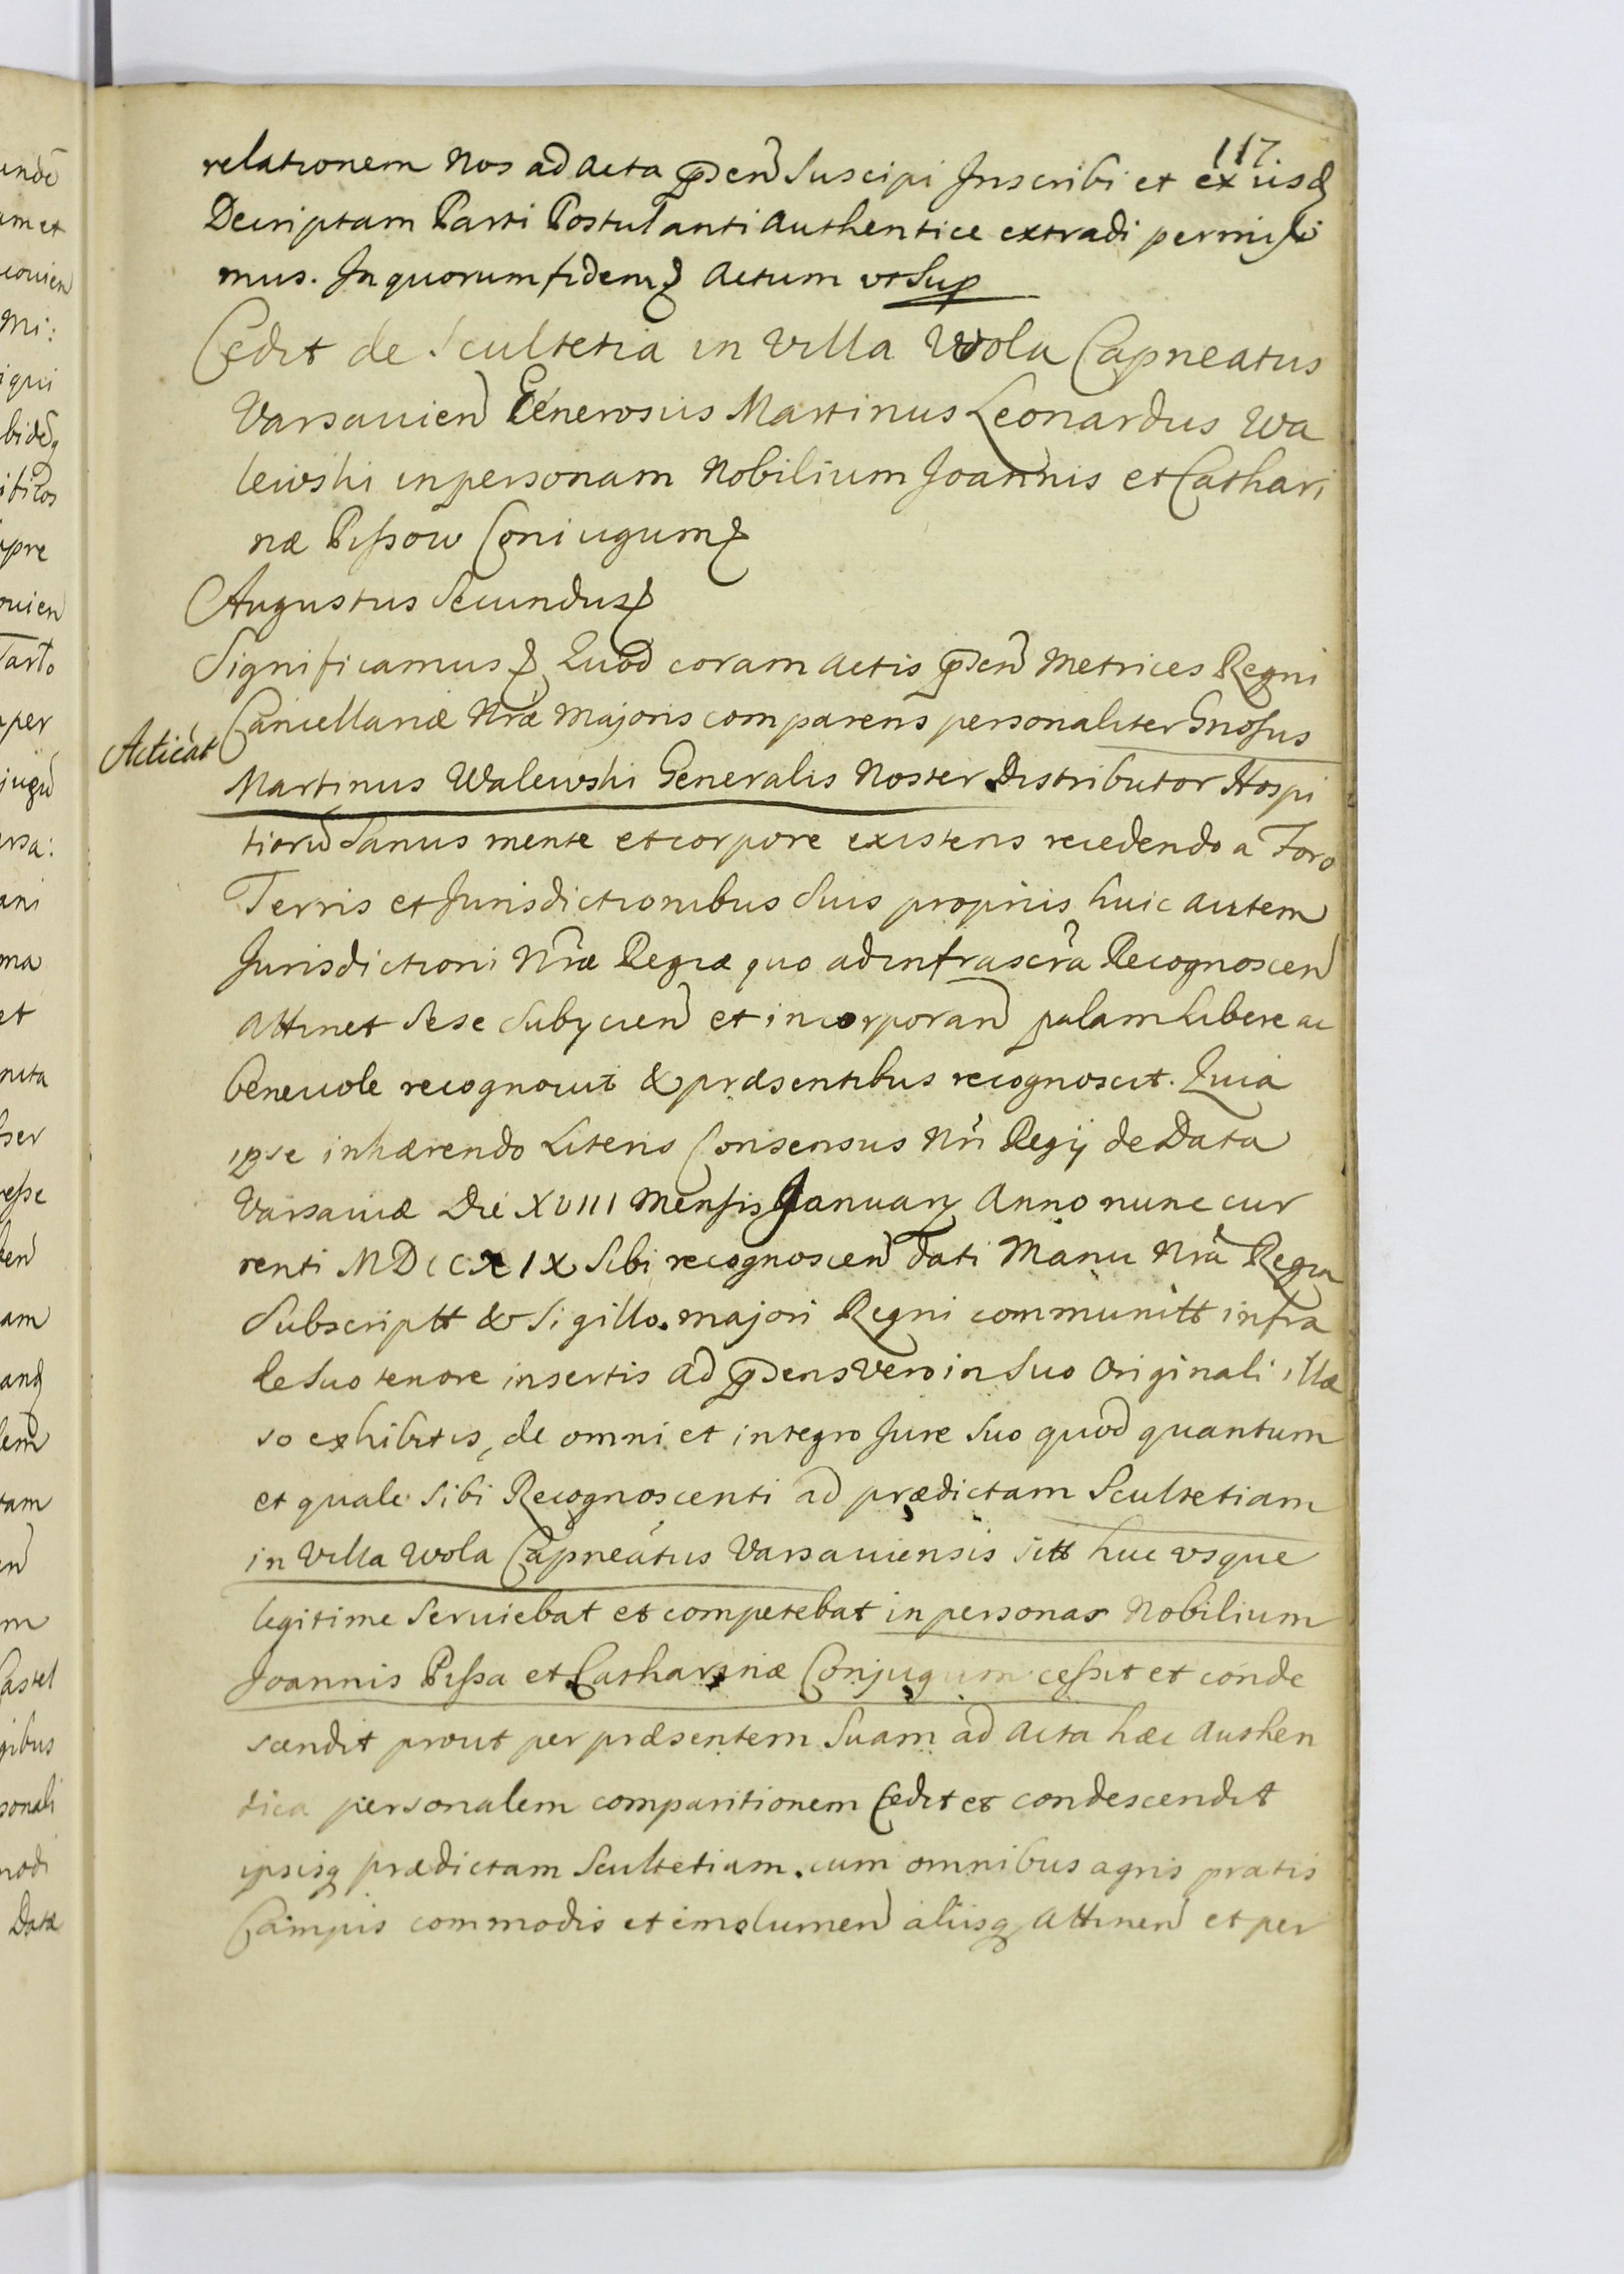 117.
relationem Nos ad Acta pñen Suscipi Inscribi et ex iisdẽ
Descriptam Parti Postulanti Authentice extradi permisi
mus. In quorum fidem Actum vt Sup
Cedit de Scultetia in Villa Wola Capneatus
Varsavien Generosus Martinus Leonardus Wa
lewski in personam Nobilium Joannis et Cathari
næ Pissow Coniugum
Augustus Secundus
Significamus Quod coram Actis pñen Metrices Regni
Cancellariæ Nræ Majoris comparens personaliter Gnosus
Acticat
Martinus Walewski Generalis Noster Distributor Hospi
tiorũ Sanus mente et corpore existens recedendo a Foro
Terris et Jurisdictionibus Suis proprijs huic autem
Jurisdictioni Nræ Regiæ quo ad infrascra Recognoscen
Attinet Sese Subijcien et incorporan palam Libere ac
benevole recognovit & præsentibus recognoscit. Quia
ipse inhærendo Literis Consensus Nri Regij de Data
Varsaviæ Die XVIII Mensis Januarij Anno nunc cur
renti MDCCXIX Sibi recognoscen dati Manu Nra Regia
Subscriptt & Sigillo majori Regni communitt infra
de Suo tenore insertis ad pñens vero in Suo Originali illæ
so exhibitis, de omni et integro Jure Suo quod quantum
et quale Sibi Recognoscenti ad prædictam Scultetiam
in Villa Wola Capneatus Varsaviensis sitt huc vsque
legitime Serviebat et competebat in personas Nobilium
Joannis Pissa et Catharinæ Conjugum cessit et conde
scendit prout per præsentem Suam ad Acta hæc Authen
tica personalem comparitionem Cedit et condescendit
ipsisq prædictam Scultetiam cum omnibus agris pratis
Campis commodis et emolumen aliisq Attinen et per